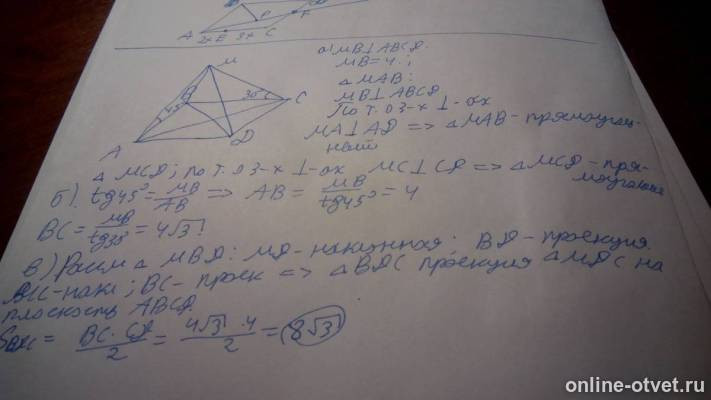 A 2x E 3x C
P F
M
45° 30° C
A D
а) MB⊥ABCD.
MB=4.;
△MAB:
MB⊥ABCD
По т. о 3-х ⊥-ах
MA⊥AD => △MAB - прямоугольный
△MCD; по т. о 3-х ⊥-ах MC⊥CD => △MCD - прямоугольные
б). tg45° = MB/AB => AB = MB/tg45° = 4
BC = MB/tg30° = 4√3.
в) Рассм △MBD: MD - наклонная; BD - проекция.
MC - накл; BC - проек => △BDC проекция △MDC на
плоскость ABCD.
= BC·CD/2 = 4√3·4/2 = 8√3
online-otvet.ru